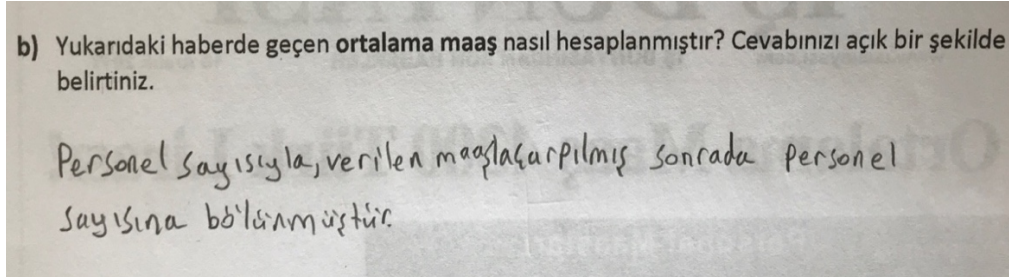 b) Yukarıdaki haberde geçen ortalama maaş nasıl hesaplanmıştır? Cevabınızı açık bir şekilde
belirtiniz.
Personel sayısıyla, verilen maaşlaçarpılmış sonrada personel
sayısına bölünmüştür.